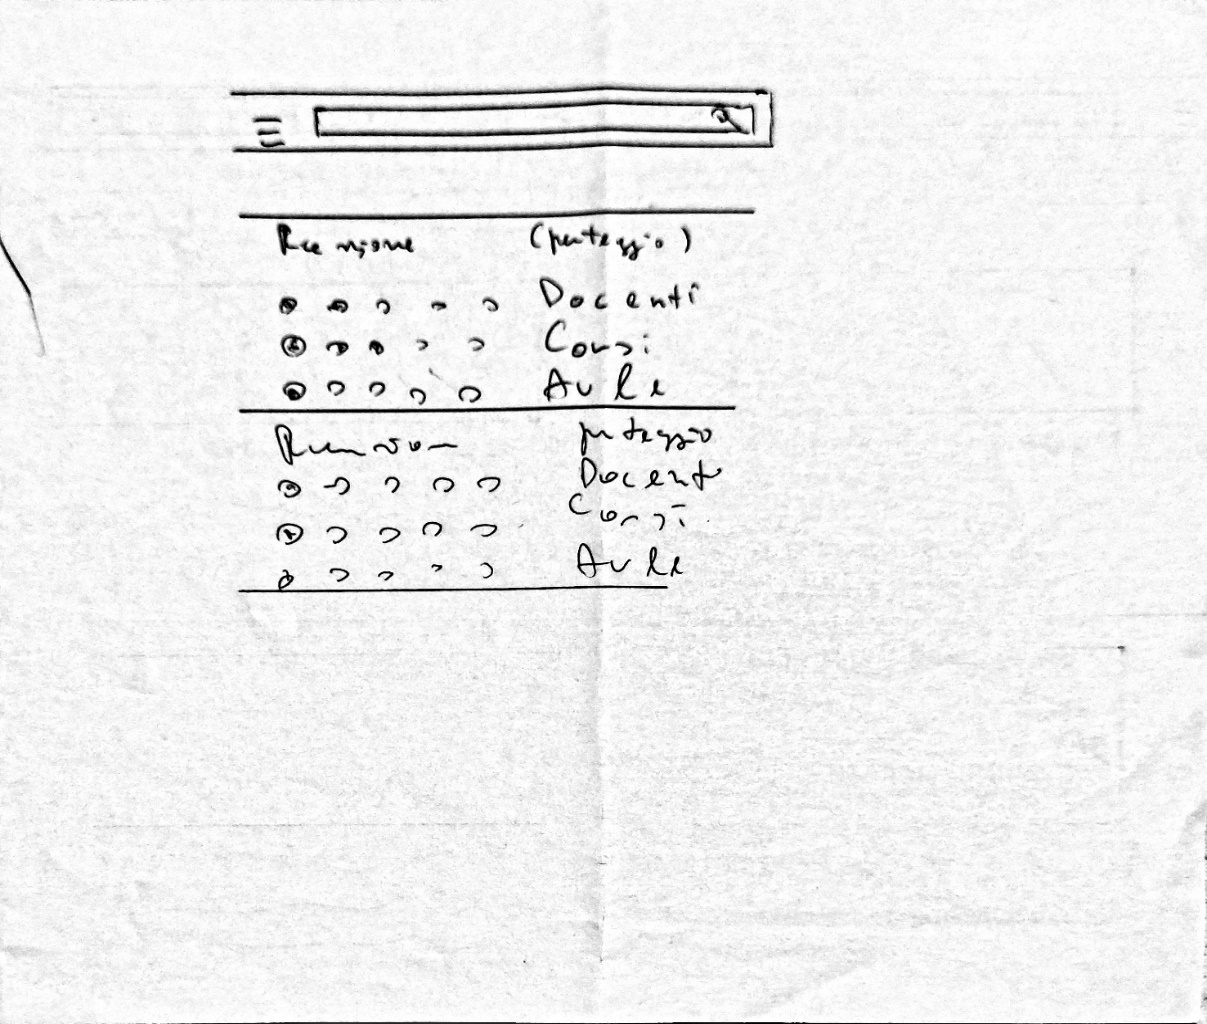 Recensione (punteggio)
Docenti
Corsi
Aule
punteggio
Docent
Corsi
Aule